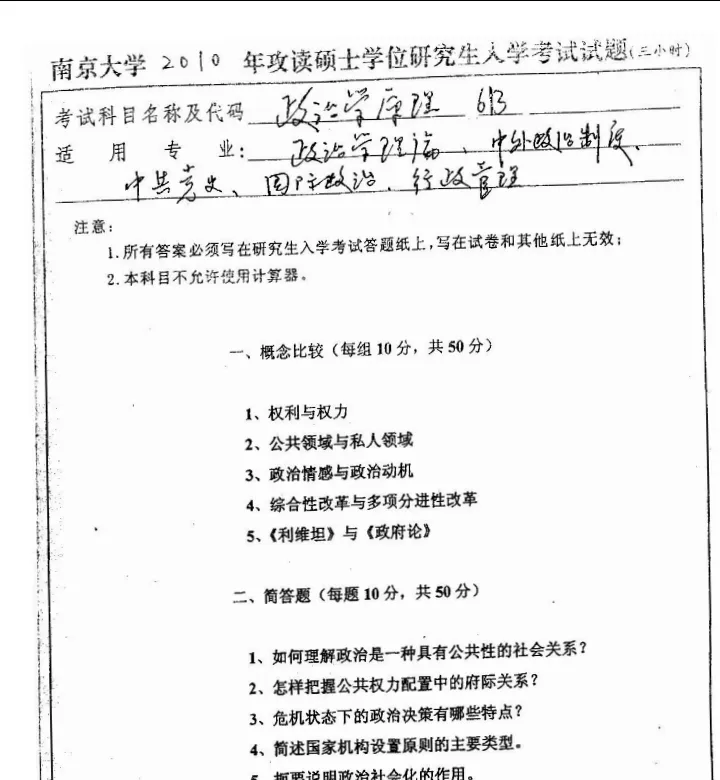 南京大学 2010 年攻读硕士学位研究生入学考试试题(三小时)
考试科目名称及代码 政治学原理 613
适用专业: 政治学理论、中外政治制度、
中共党史、国际政治、行政管理
注意:
1.所有答案必须写在研究生入学考试答题纸上,写在试卷和其他纸上无效;
2.本科目不允许使用计算器。
一、概念比较（每组 10 分，共 50 分）
1、权利与权力
2、公共领域与私人领域
3、政治情感与政治动机
4、综合性改革与多项分进性改革
5、《利维坦》与《政府论》
二、简答题（每题 10 分，共 50 分）
1、如何理解政治是一种具有公共性的社会关系？
2、怎样把握公共权力配置中的府际关系？
3、危机状态下的政治决策有哪些特点？
4、简述国家机构设置原则的主要类型。
5、扼要说明政治社会化的作用。